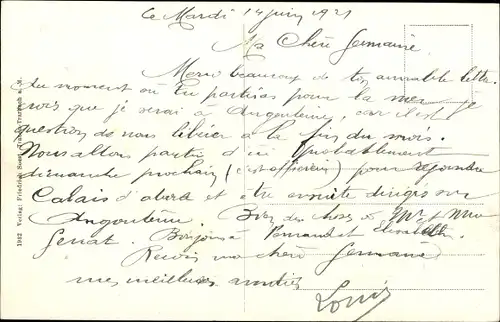 Le Mardi 14 juin 1921
Ma Chère Germaine.
Merci beaucoup de ton aimable lettre
du moment où tu partiras pour la mer je
crois que je serai à Angoulême, car il est
question de nous libérer à la fin du mois.
Nous allons partir d'ici probablement
dimanche prochain (c'est officieux) pour rejoindre
Calais d'abord et être ensuite dirigés sur
Angoulême. Bien des choses à Mr et Mme
Senat. Bonjour à Fernand et Elisabeth.
Reçois ma chère Germaine
mes meilleures amitiés
Louis
1982 Verlag: Friedrich Sear, Traben-Trarbach a. M.